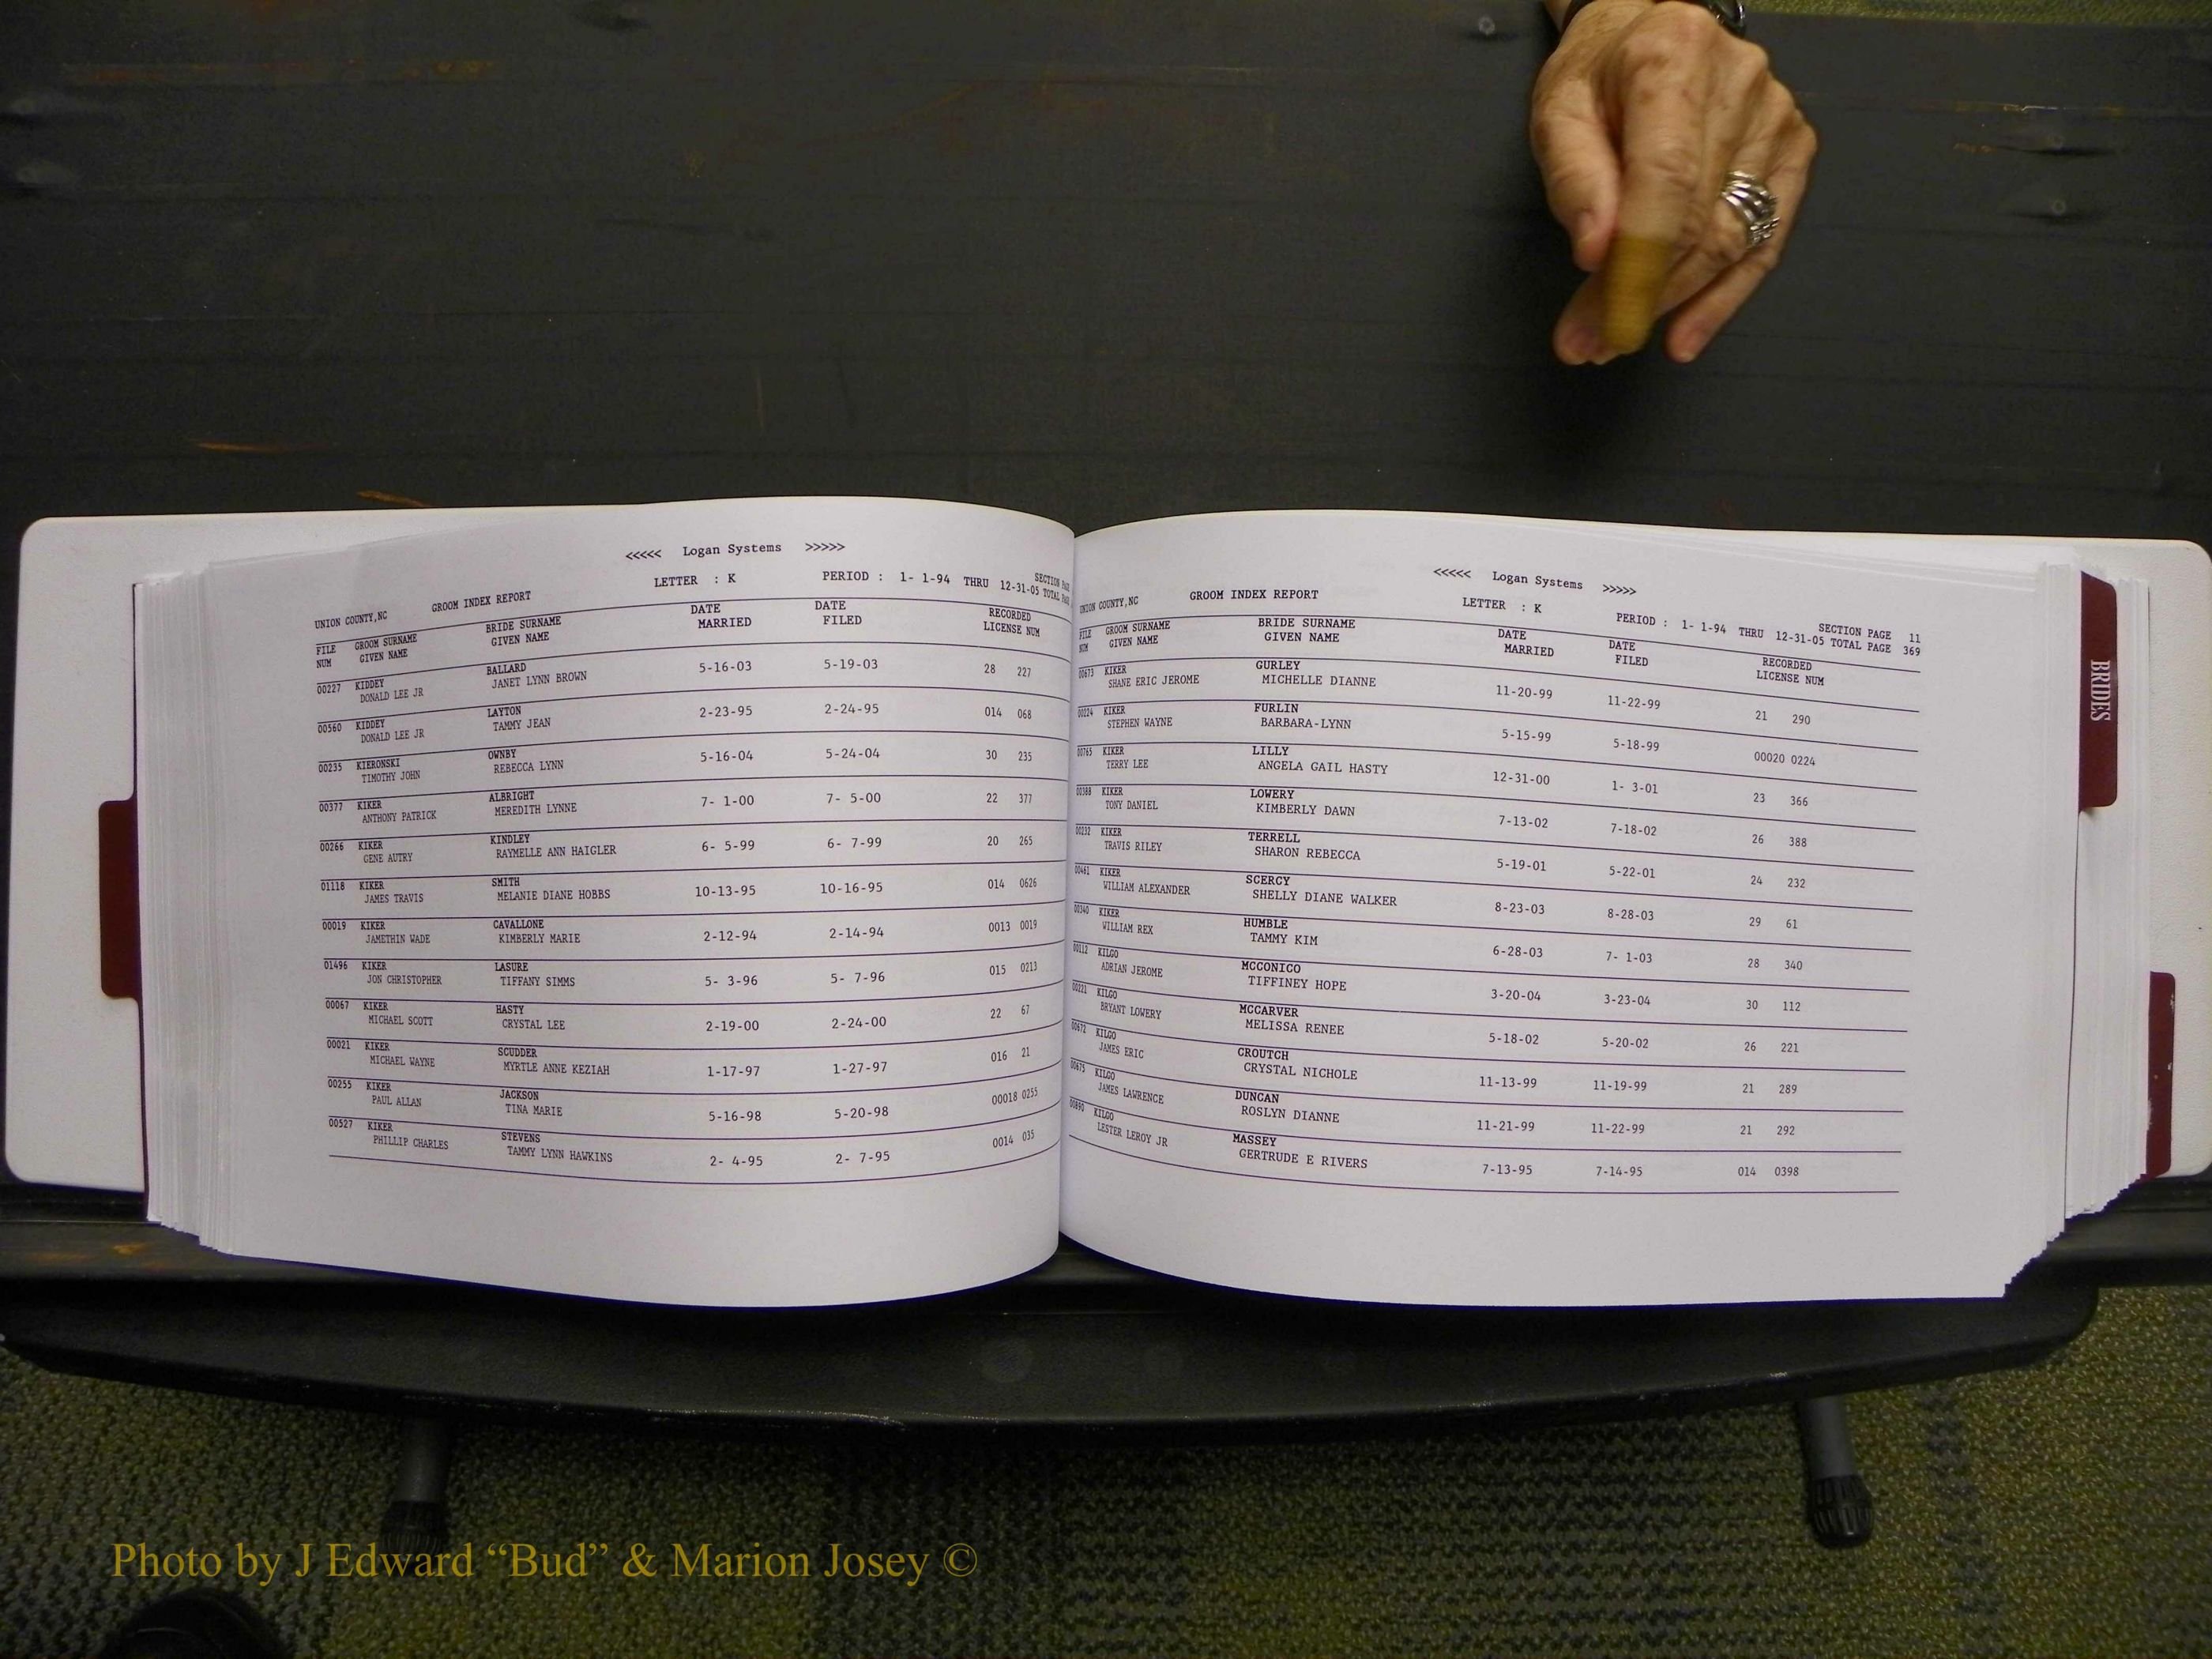 <<<<< Logan Systems >>>>>
SECTION
UNION COUNTY,NC GROOM INDEX REPORT LETTER : K PERIOD : 1- 1-94 THRU 12-31-05 TOTAL
FILE GROOM SURNAME BRIDE SURNAME DATE DATE RECORDED
NUM GIVEN NAME GIVEN NAME MARRIED FILED LICENSE NUM
00227 KIDDEY BALLARD 5-16-03 5-19-03 28 227
DONALD LEE JR JANET LYNN BROWN
00560 KIDDEY LAYTON 2-23-95 2-24-95 014 068
DONALD LEE JR TAMMY JEAN
00235 KIERONSKI OWNBY 5-16-04 5-24-04 30 235
TIMOTHY JOHN REBECCA LYNN
00377 KIKER ALBRIGHT 7- 1-00 7- 5-00 22 377
ANTHONY PATRICK MEREDITH LYNNE
00266 KIKER KINDLEY 6- 5-99 6- 7-99 20 265
GENE AUTRY RAYMELLE ANN HAIGLER
01118 KIKER SMITH 10-13-95 10-16-95 014 0626
JAMES TRAVIS MELANIE DIANE HOBBS
00019 KIKER CAVALLONE 2-12-94 2-14-94 0013 0019
JAMETHIN WADE KIMBERLY MARIE
01496 KIKER LASURE 5- 3-96 5- 7-96 015 0213
JON CHRISTOPHER TIFFANY SIMMS
00067 KIKER HASTY 2-19-00 2-24-00 22 67
MICHAEL SCOTT CRYSTAL LEE
00021 KIKER SCUDDER 1-17-97 1-27-97 016 21
MICHAEL WAYNE MYRTLE ANNE KEZIAH
00255 KIKER JACKSON 5-16-98 5-20-98 00018 0255
PAUL ALLAN TINA MARIE
00527 KIKER STEVENS 2- 4-95 2- 7-95 0014 035
PHILLIP CHARLES TAMMY LYNN HAWKINS
<<<<< Logan Systems >>>>>
SECTION PAGE 11
UNION COUNTY,NC GROOM INDEX REPORT LETTER : K PERIOD : 1- 1-94 THRU 12-31-05 TOTAL PAGE 369
FILE GROOM SURNAME BRIDE SURNAME DATE DATE RECORDED
NUM GIVEN NAME GIVEN NAME MARRIED FILED LICENSE NUM
00673 KIKER GURLEY 11-20-99 11-22-99 21 290
SHANE ERIC JEROME MICHELLE DIANNE
00224 KIKER FURLIN 5-15-99 5-18-99 00020 0224
STEPHEN WAYNE BARBARA-LYNN
00765 KIKER LILLY 12-31-00 1- 3-01 23 366
TERRY LEE ANGELA GAIL HASTY
00388 KIKER LOWERY 7-13-02 7-18-02 26 388
TONY DANIEL KIMBERLY DAWN
00232 KIKER TERRELL 5-19-01 5-22-01 24 232
TRAVIS RILEY SHARON REBECCA
00461 KIKER SCERCY 8-23-03 8-28-03 29 61
WILLIAM ALEXANDER SHELLY DIANE WALKER
00340 KIKER HUMBLE 6-28-03 7- 1-03 28 340
WILLIAM REX TAMMY KIM
00112 KILGO MCCONICO 3-20-04 3-23-04 30 112
ADRIAN JEROME TIFFINEY HOPE
00221 KILGO MCCARVER 5-18-02 5-20-02 26 221
BRYANT LOWERY MELISSA RENEE
00672 KILGO CROUTCH 11-13-99 11-19-99 21 289
JAMES ERIC CRYSTAL NICHOLE
00675 KILGO DUNCAN 11-21-99 11-22-99 21 292
JAMES LAWRENCE ROSLYN DIANNE
00890 KILGO MASSEY 7-13-95 7-14-95 014 0398
LESTER LEROY JR GERTRUDE E RIVERS
BRIDES
Photo by J Edward “Bud” & Marion Josey ©